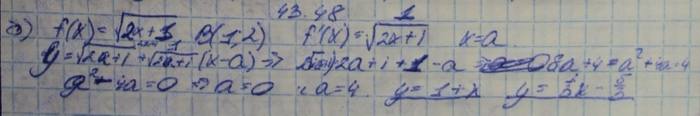 43.48
б) f(x)=√2x+1 B(1;2) f'(x)=1/√2x+1 x=a
y=√2a+1+1/√2a+1(x-a) ⇒ 2a+1+1-a 8a+4=a²+4a+4
a²-4a=0 ⇒ a=0 ; a=4. y=1+x y=1/3x-5/3